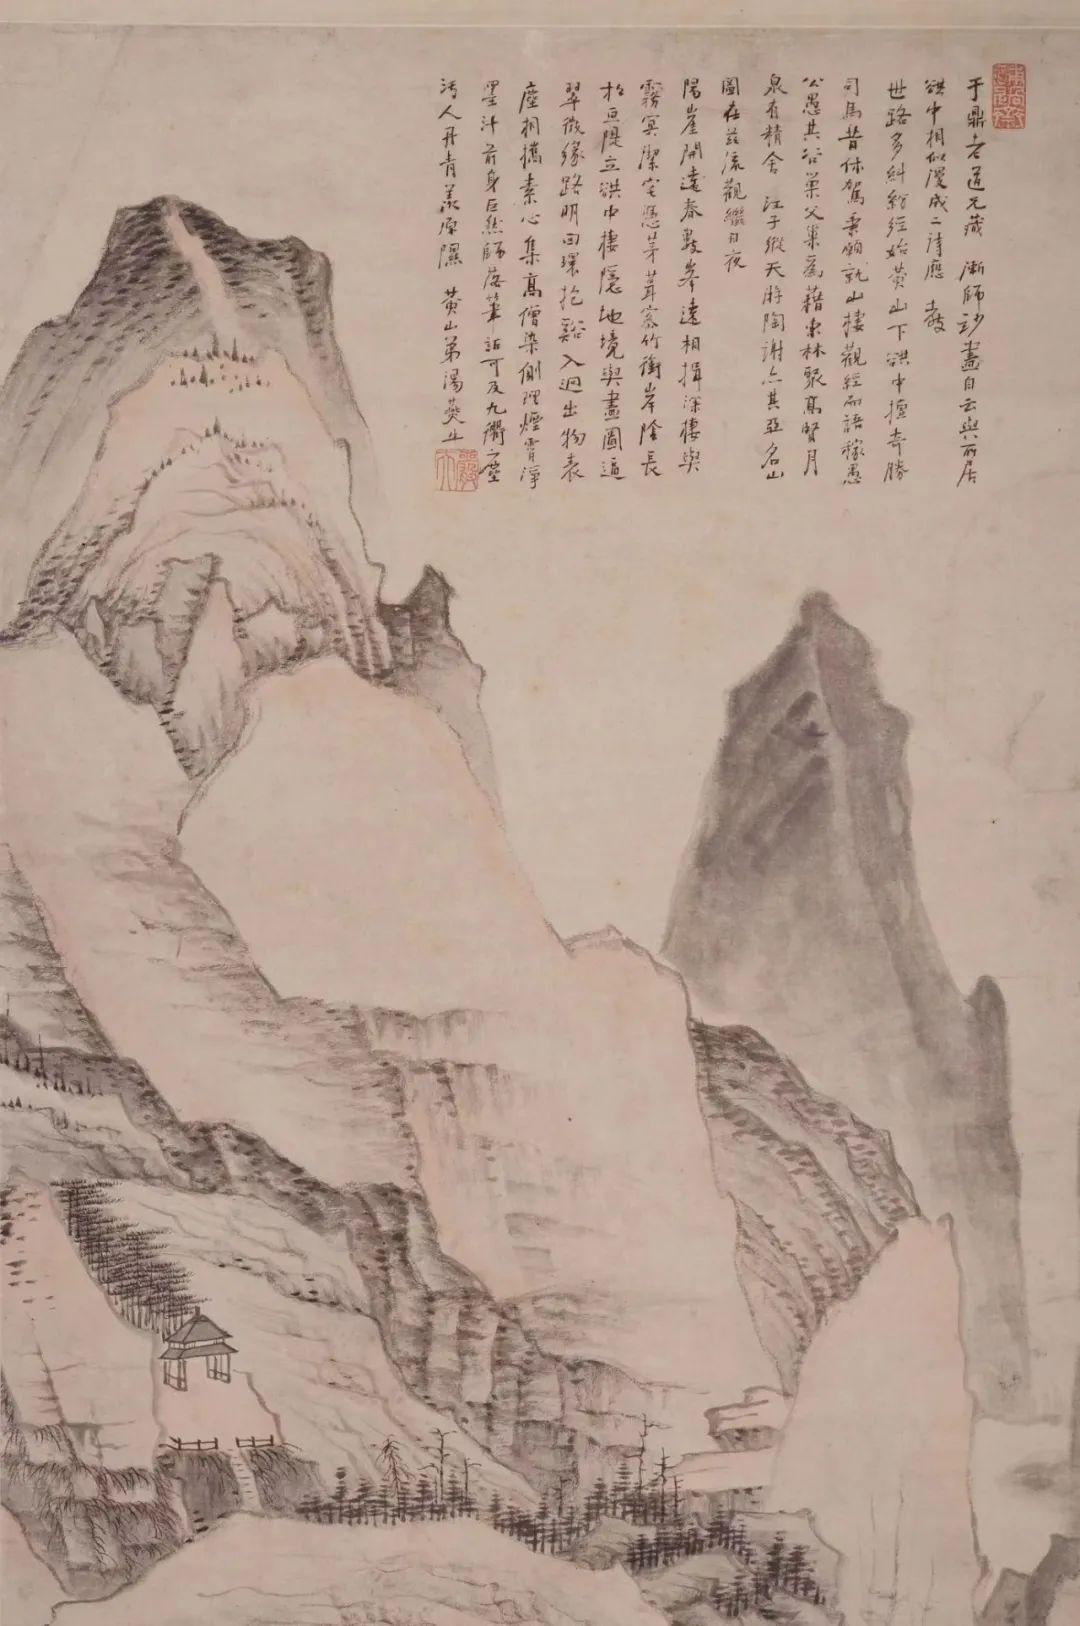 于鼎老道兄藏 漸師妙畫自云與所居
谼中相似漫成二詩應 教
世路多糾紛經始黃山下谼中擅奇勝
司馬昔休駕秉願就山棲觀經而語稼愚
公愚其谷巢父巢為藉東林聚高賢月
泉有精舍 江子縱天游陶謝亦其亞名山
圖在茲流觀繼日夜
陽崖開遠春數峯遠相揖深棲與
霧冥潔宅憑茅葺密竹衛岸陰長
松亘隄立谼中棲隱地境與畫圖逼
翠微緣路明回環抱谿入迥出物表
塵相攜素心集高僧染側理煙霄淨
墨汁前身巨然師落筆詎可及九衢塵
污人丹青羨原隰 黃山弟湯燕生